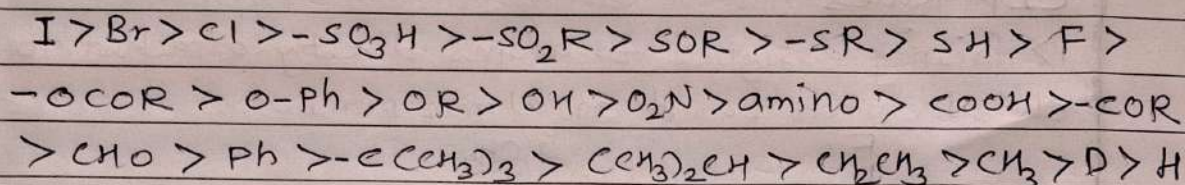 I > Br > Cl > -SO₃H > -SO₂R > SOR > -SR > SH > F >
-OCOR > O-Ph > OR > OH > O₂N > amino > COOH > -COR
> CHO > Ph > -C(CH₃)₃ > (CH₃)₂CH > CH₂CH₃ > CH₃ > D > H